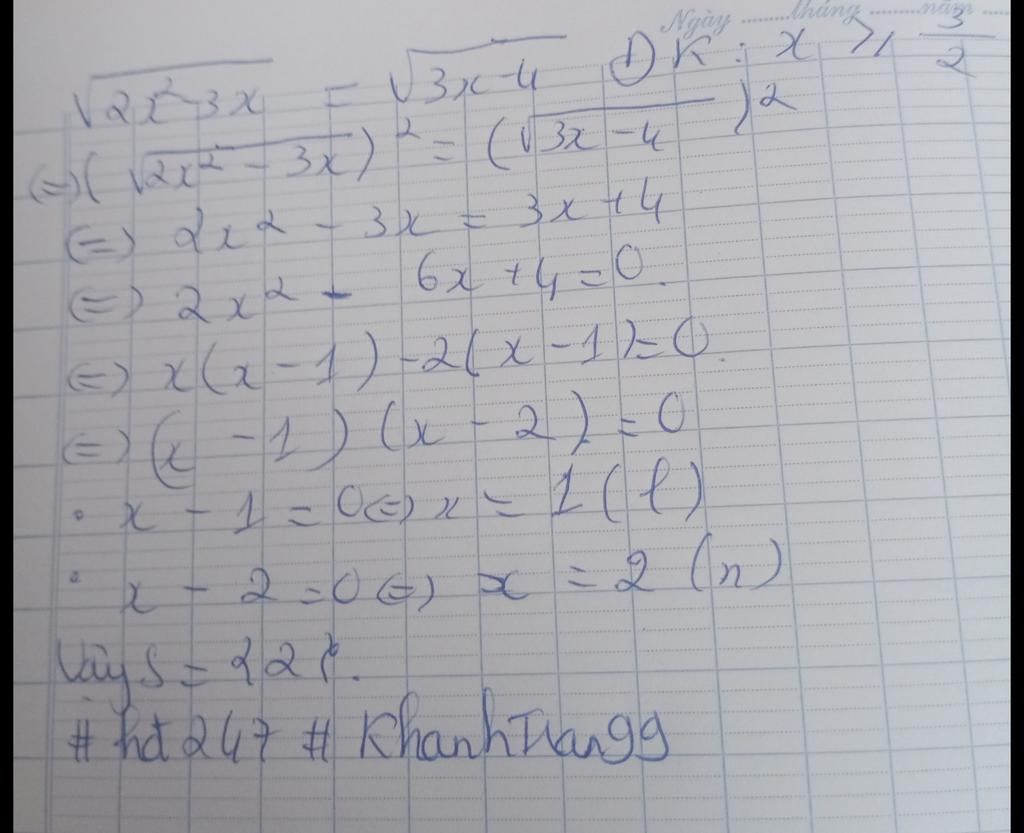 Ngày ........ tháng ........ năm .....
√(2x² - 3x) = √(3x-4) ĐK: x ≥ 3/2
(=) (√(2x² - 3x))² = (√(3x - 4))²
(=) 2x² - 3x = 3x + 4
(=) 2x² - 6x + 4 = 0.
(=) x(x - 1) - 2(x - 1) = 0.
(=) (x - 1) (x - 2) = 0
• x - 1 = 0 (=) x = 1 (l)
• x - 2 = 0 (=) x = 2 (n)
Vậy S = {2}.
# hđ 247 # KhanhTrang9